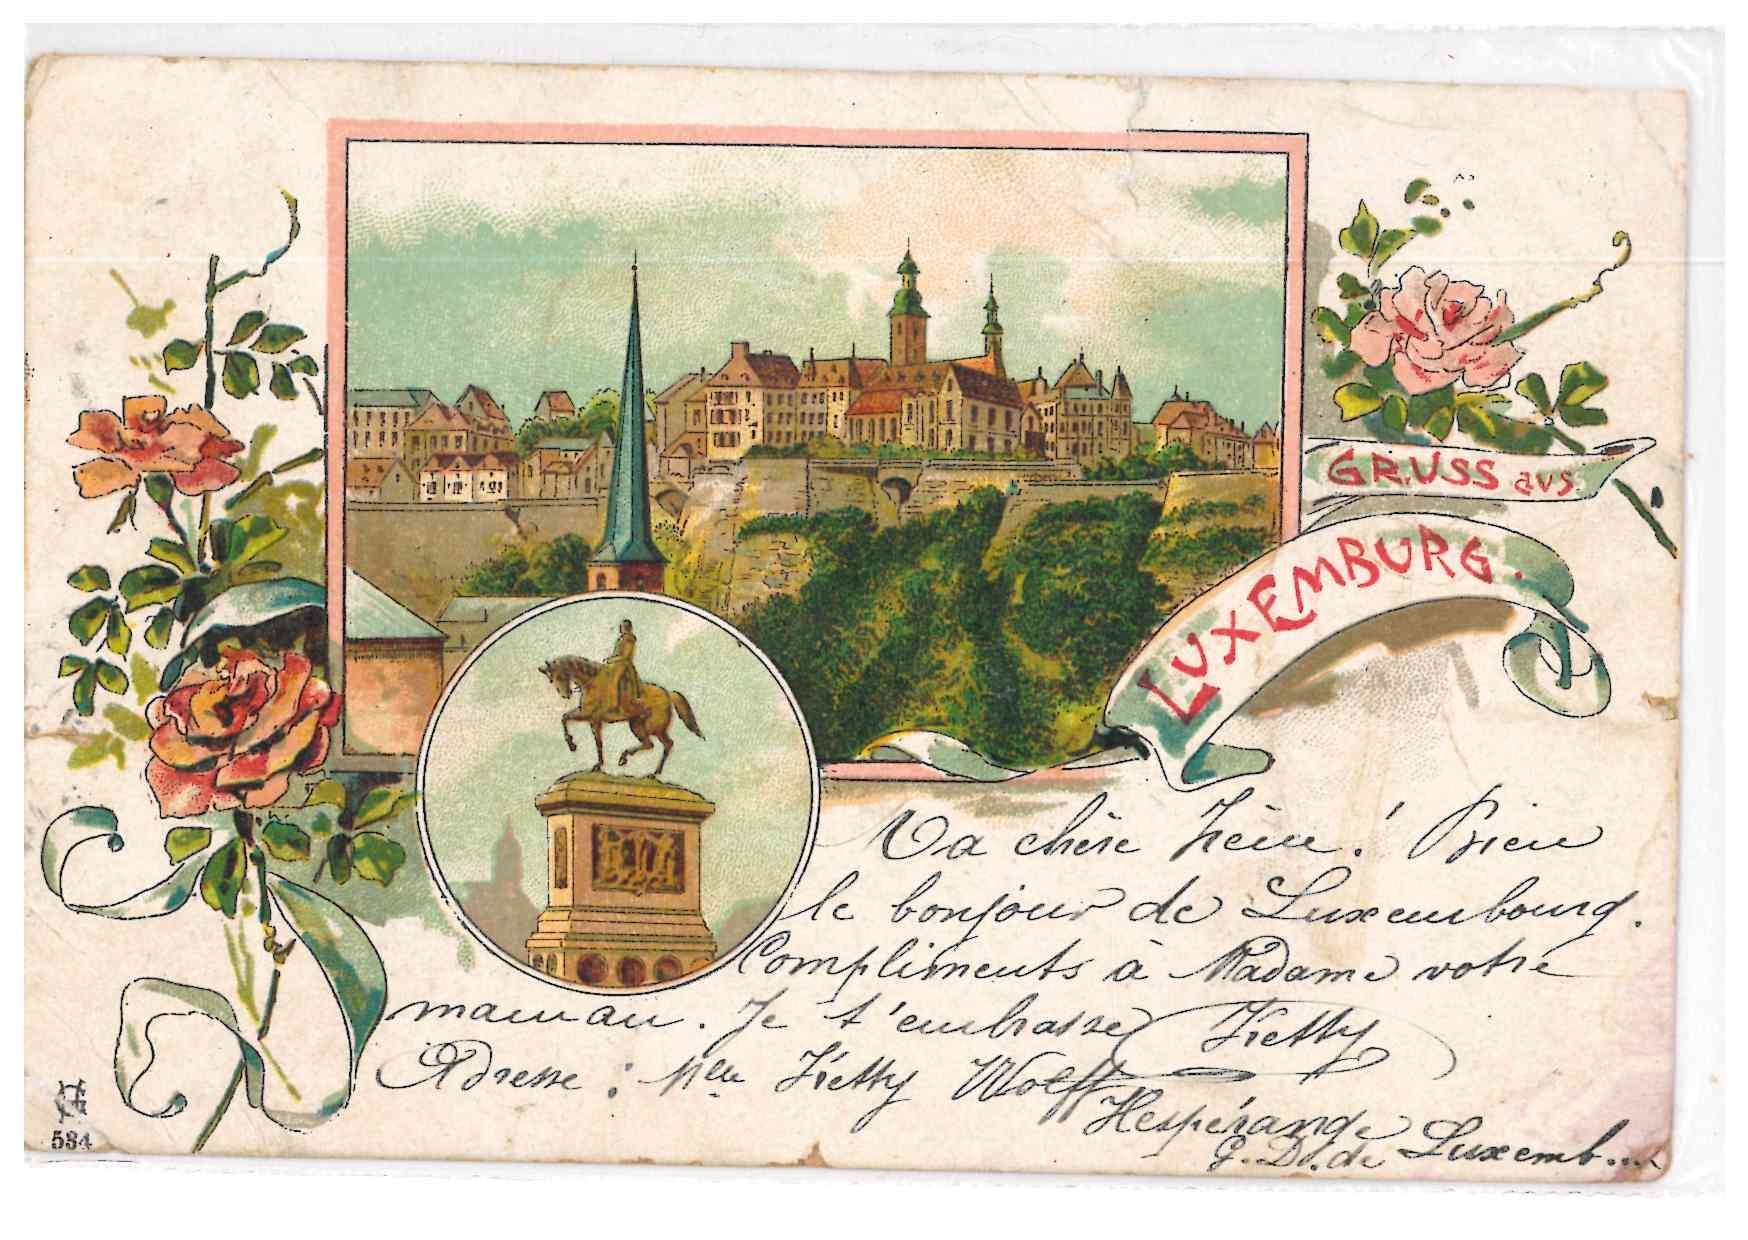 GRUSS aus
LUXEMBURG.
Ma chère Irène! Bien
le bonjour de Luxembourg.
Compliments à Madame votre
maman. Je t'embrasse Ketty
Adresse: Melle Ketty Wolff
Hespérange
G. D. de Luxemb...
534